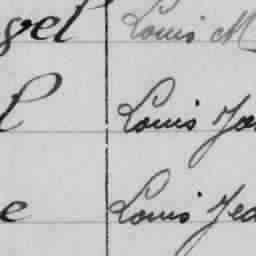 gel Louis M
l Louis Ja
e Louis Jea